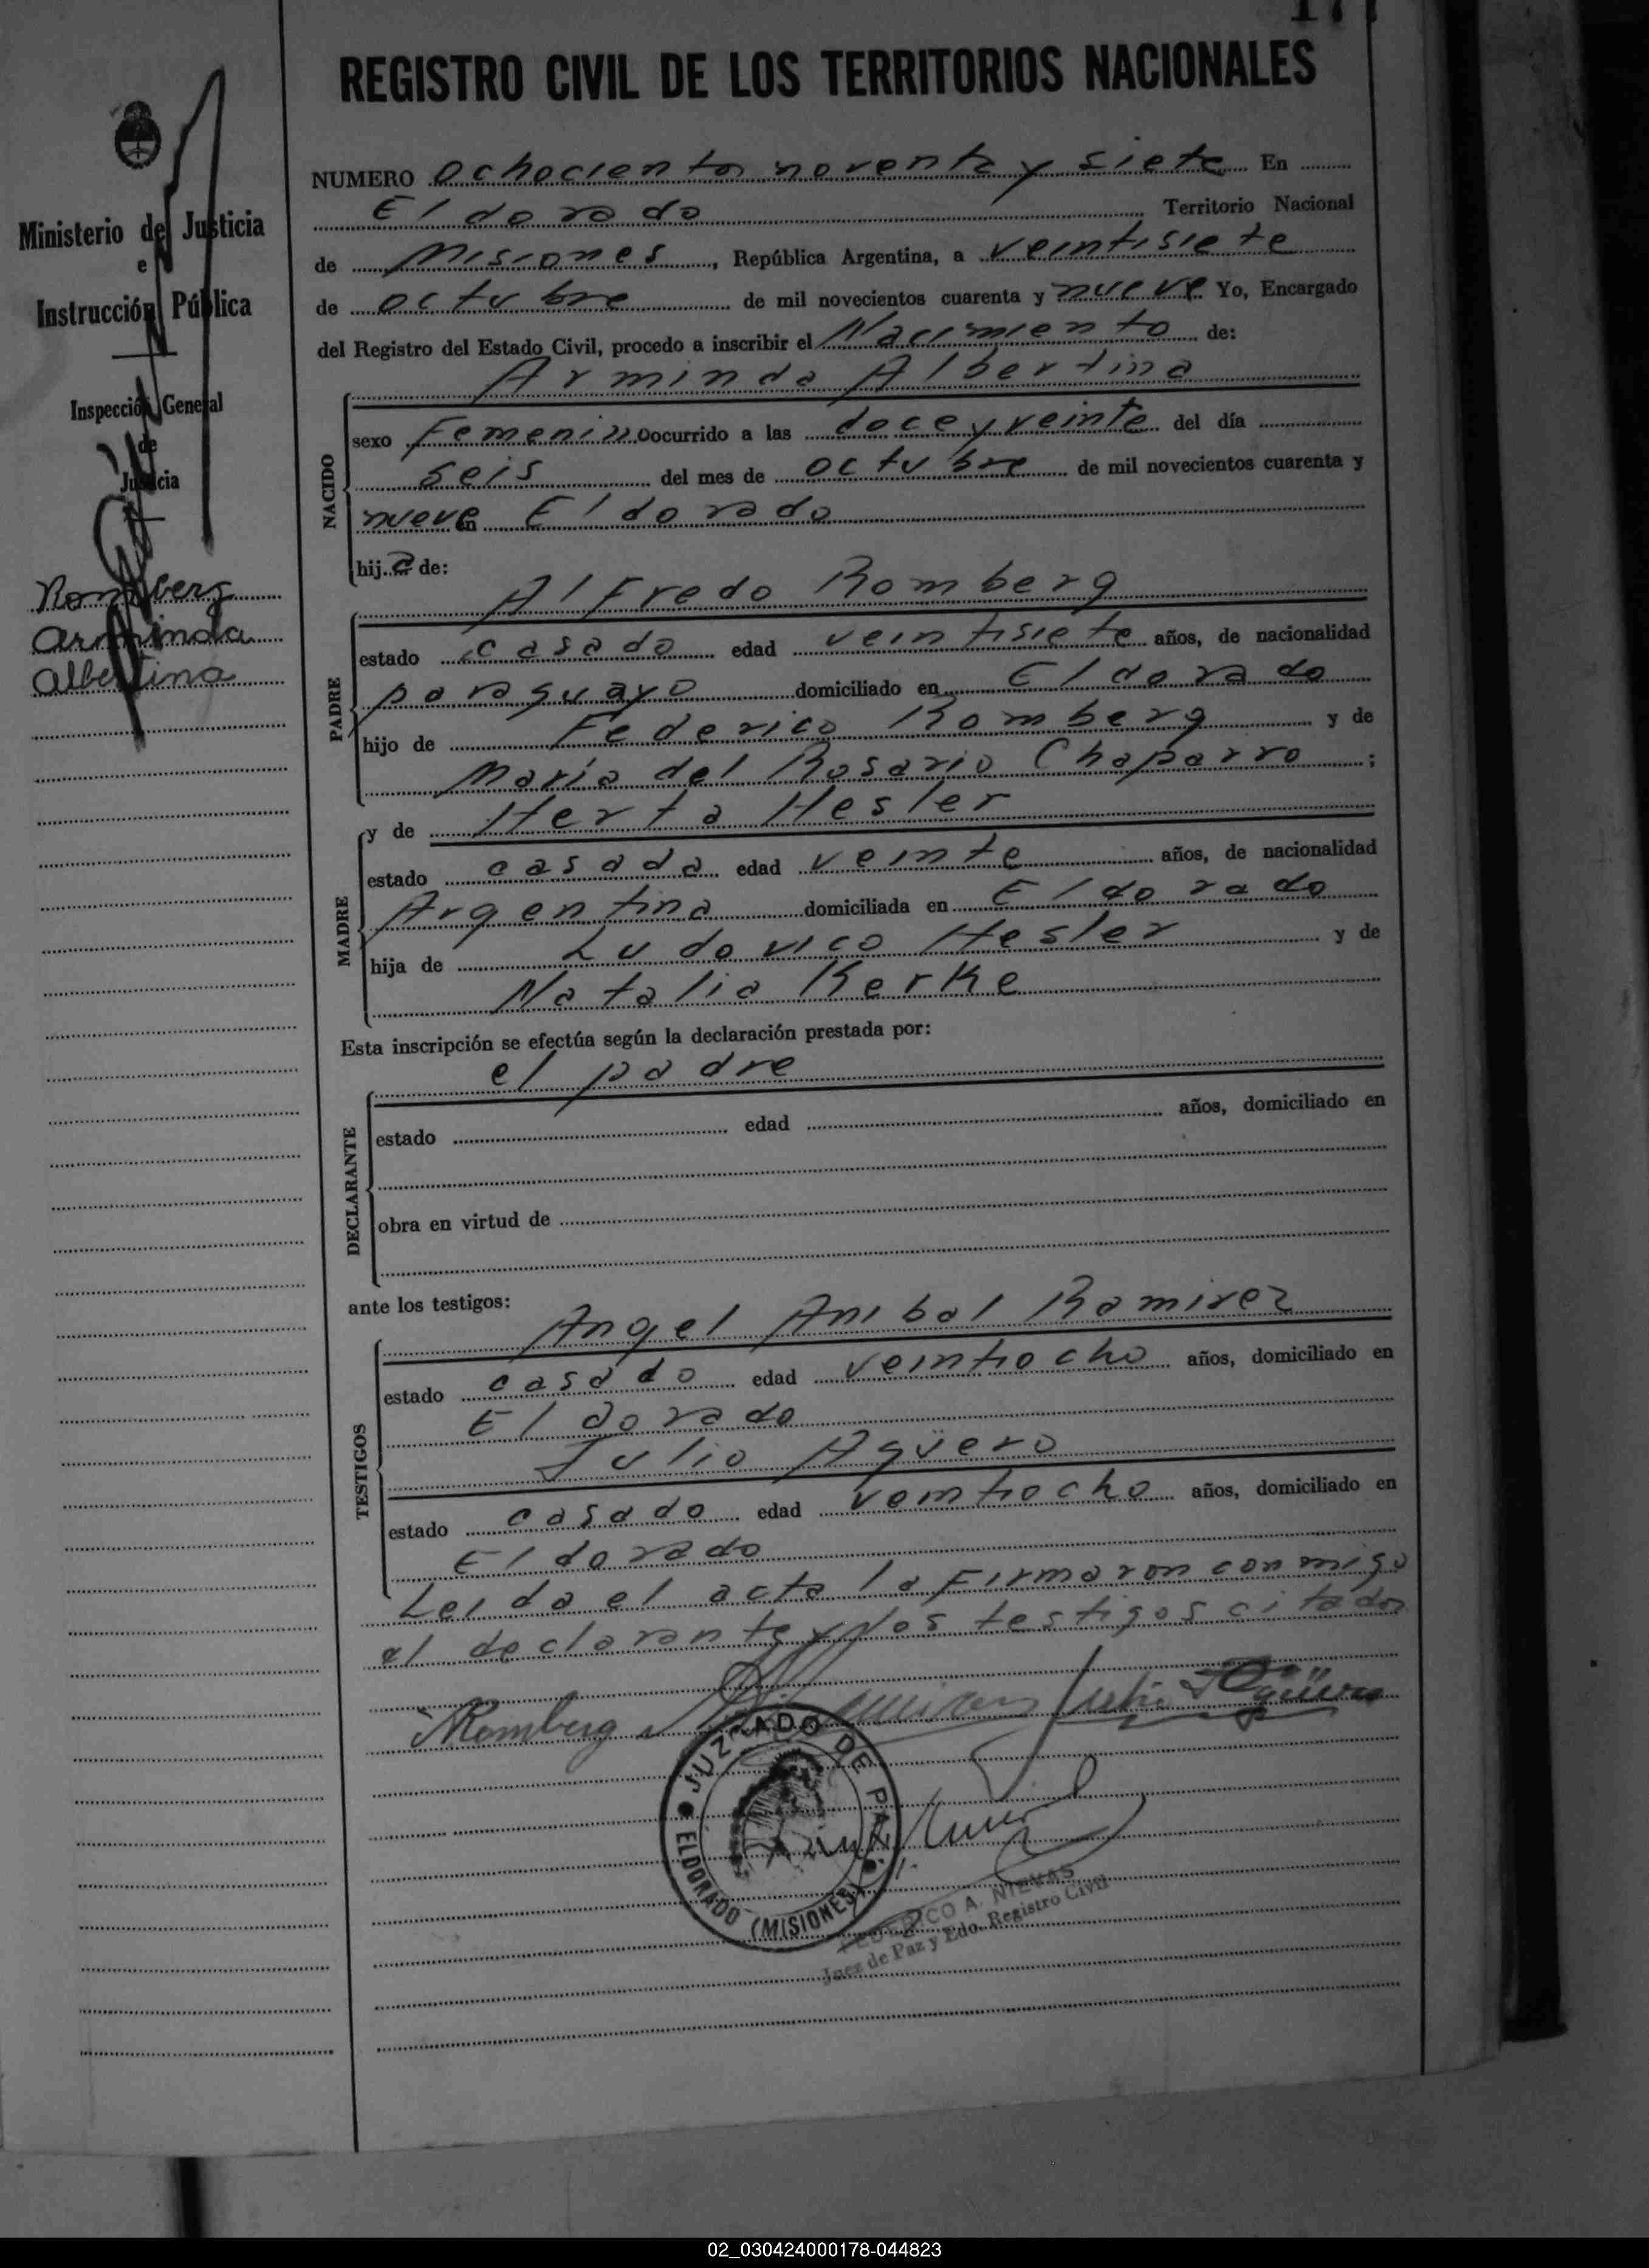 REGISTRO CIVIL DE LOS TERRITORIOS NACIONALES
Ministerio de Justicia
e
Instrucción Pública
Inspección General
de
Justicia
Romberg
Arminda
Albertina
NUMERO ochocientos noventa y siete En
Eldorado Territorio Nacional
de Misiones, República Argentina, a veintisiete
de octubre de mil novecientos cuarenta y nueve Yo, Encargado
del Registro del Estado Civil, procedo a inscribir el Nacimiento de:
Arminda Albertina
NACIDO
sexo Femenino ocurrido a las doce y veinte del día
seis del mes de octubre de mil novecientos cuarenta y
nueve en Eldorado
hija de:
Alfredo Romberg
PADRE
estado casado edad veintisiete años, de nacionalidad
paraguayo domiciliado en Eldorado
hijo de Federico Romberg y de
María del Rosario Chaparro;
MADRE
y de Herta Hesler
estado casada edad veinte años, de nacionalidad
Argentina domiciliada en Eldorado
hija de Ludovico Hesler y de
Natalia Kerke
Esta inscripción se efectúa según la declaración prestada por:
el padre
DECLARANTE
estado edad años, domiciliado en
obra en virtud de
ante los testigos:
Angel Anibal Ramirez
TESTIGOS
estado casado edad veintiocho años, domiciliado en
Eldorado
Julio Agüero
estado casado edad veintiocho años, domiciliado en
Eldorado
Leida el acta la Firmaron conmigo
el declarante y los testigos citados
Romberg Julio Agüero
JUZGADO DE PAZ
ELDORADO (MISIONES)
FEDERICO A. NIEVAS
Juez de Paz y Edo. Registro Civil
02_030424000178-044823